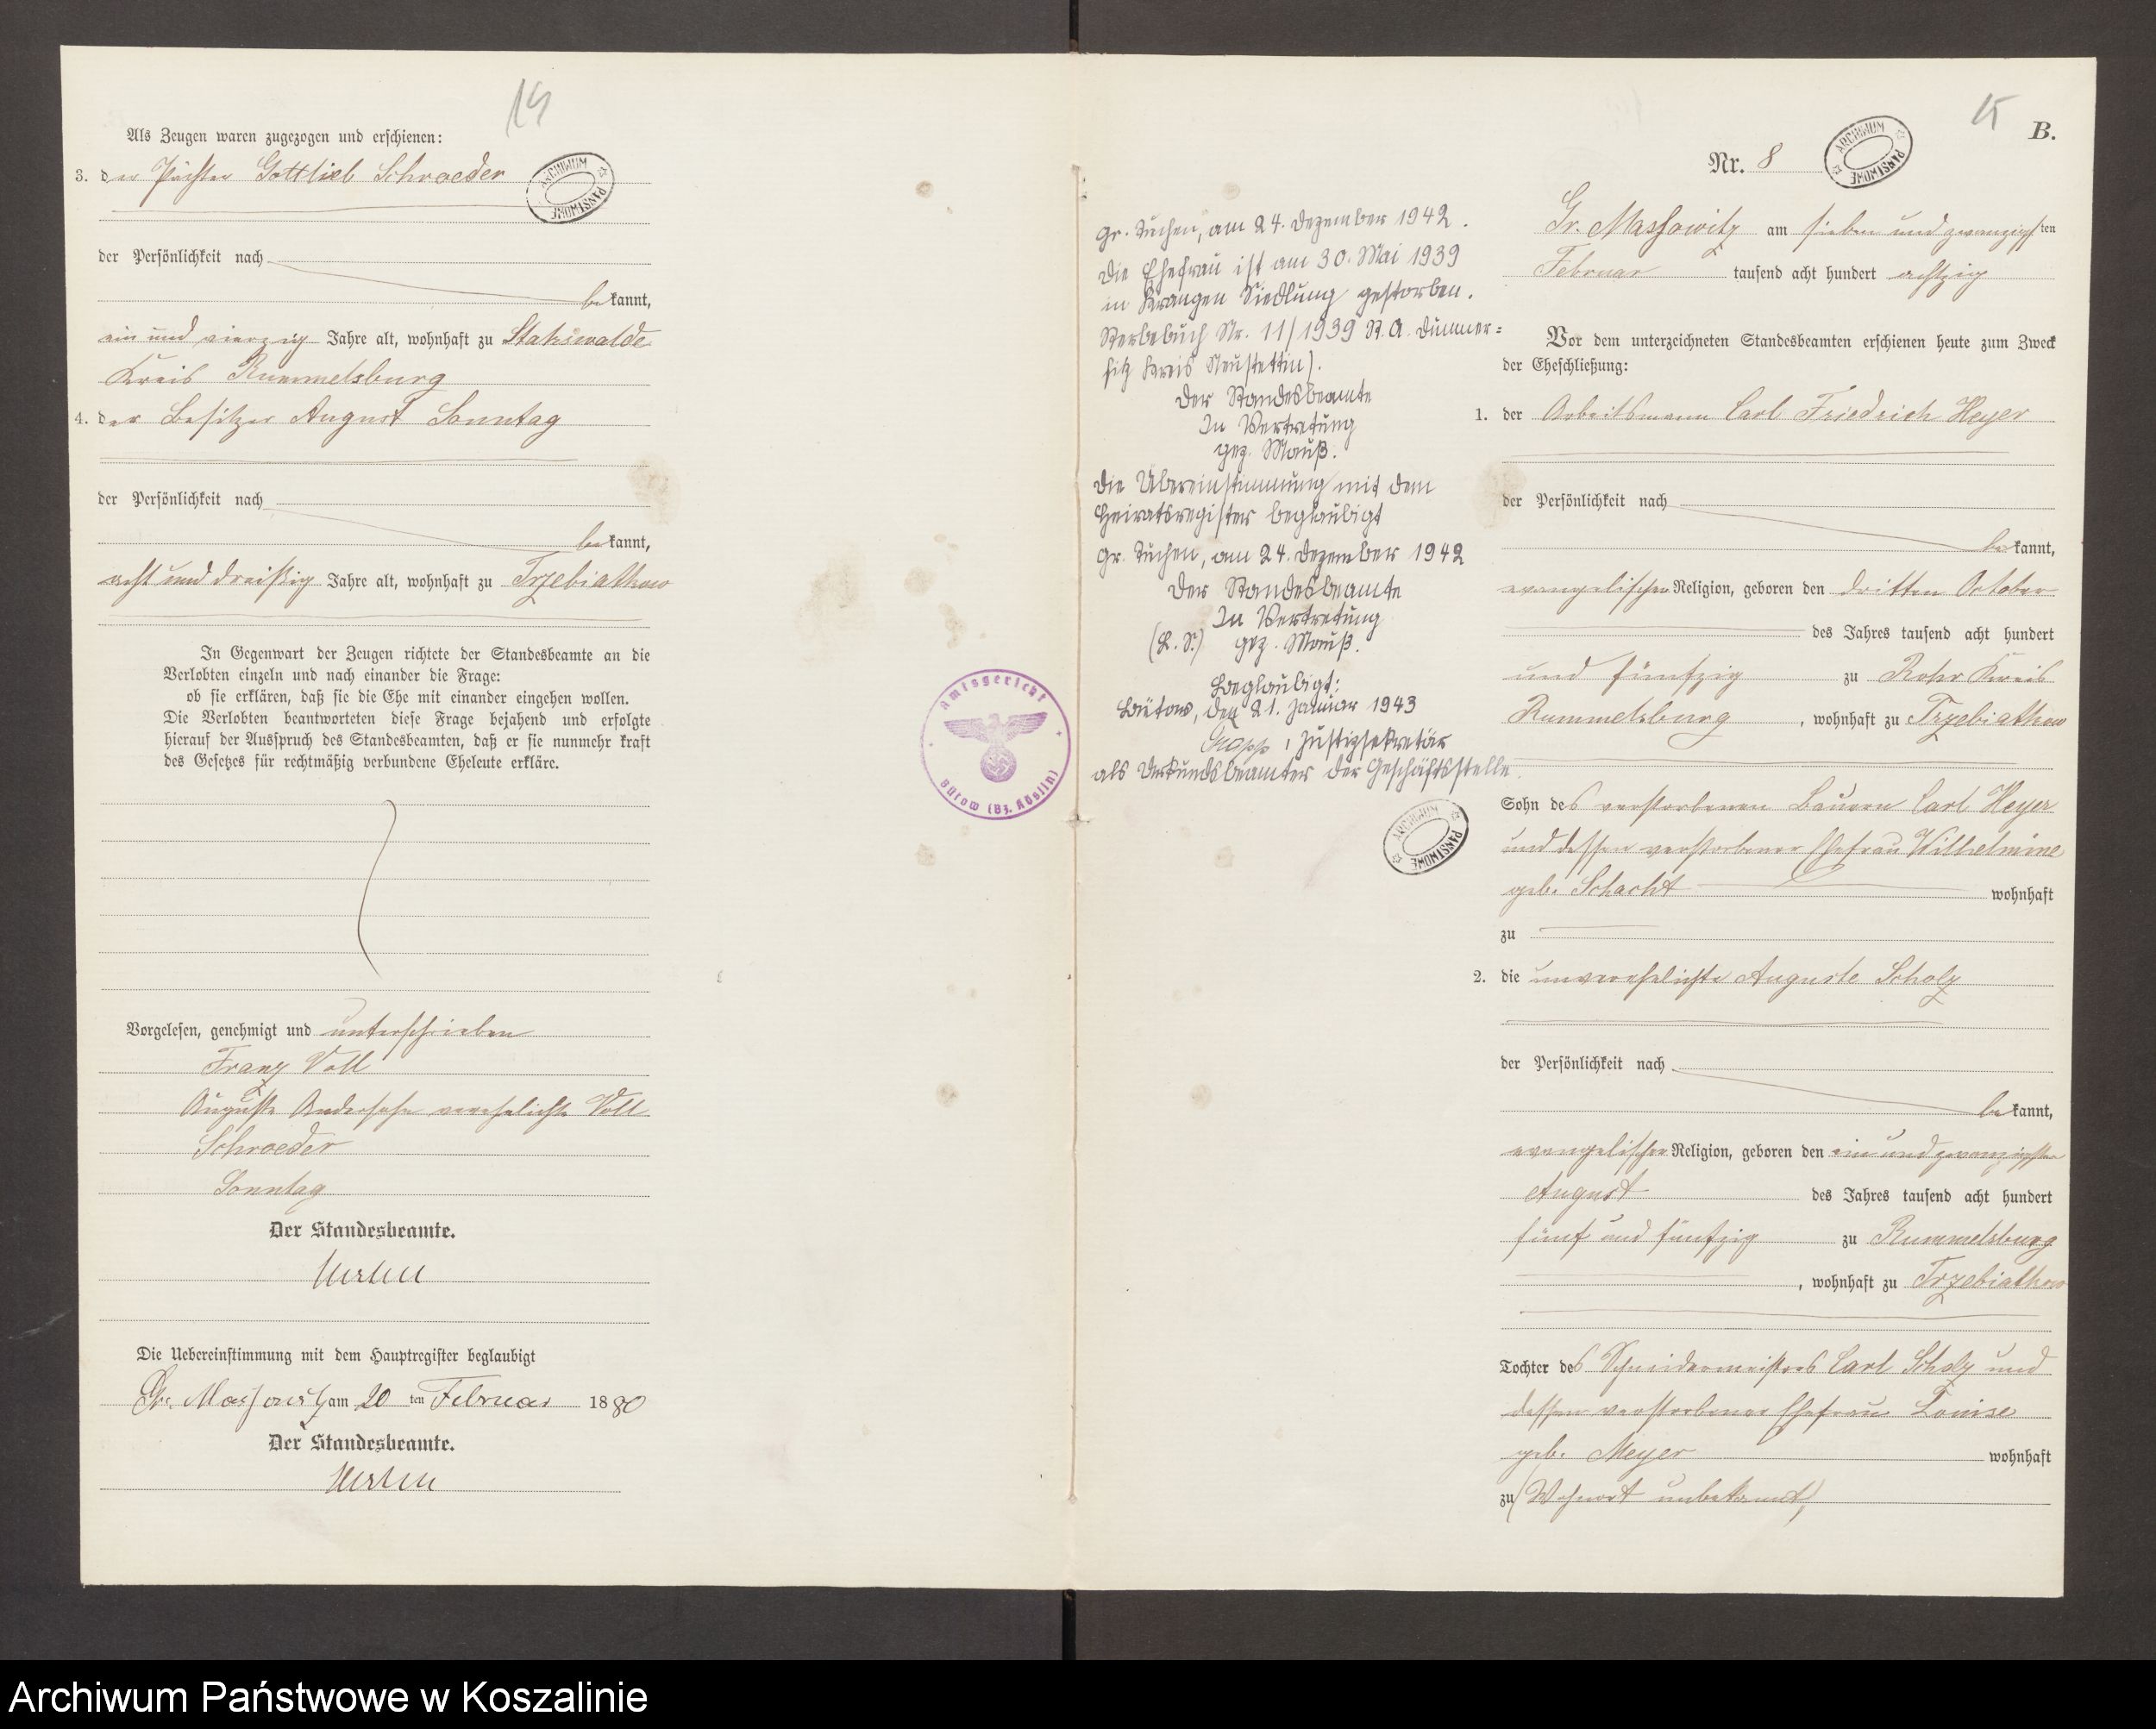 14
Als Zeugen waren zugezogen und erschienen:
3. der Pächter Gottlieb Schroeder
ARCHIWUM PAŃSTWOWE
der Persönlichkeit nach
be kannt,
ein und vierzig Jahre alt, wohnhaft zu Stahswalde
Kreis Rummelsburg
4. der Besitzer August Sonntag
der Persönlichkeit nach
be kannt,
acht und dreißig Jahre alt, wohnhaft zu Trzebiatkow
In Gegenwart der Zeugen richtete der Standesbeamte an die
Verlobten einzeln und nach einander die Frage:
ob sie erklären, daß sie die Ehe mit einander eingehen wollen.
Die Verlobten beantworteten diese Frage bejahend und erfolgte
hierauf der Ausspruch des Standesbeamten, daß er sie nunmehr kraft
des Gesetzes für rechtmäßig verbundene Eheleute erkläre.
Vorgelesen, genehmigt und unterschrieben
Franz Voll
Auguste verehelichte Voll
Schroeder
Sonntag
Der Standesbeamte.
Die Uebereinstimmung mit dem Hauptregister beglaubigt
Gr. Massowitz am 20 ten Februar 1880
Der Standesbeamte.
Amtsgericht
Bütow (Bz. Köslin)
Gr. Tuchen, am 24. Dezember 1942.
Die Ehefrau ist am 30. Mai 1939
in Krangen Siedlung gestorben.
Sterbebuch Nr. 11/1939 St. A. Dummer=
fitz Kreis Neustettin).
Der Standesbeamte
In Vertretung
gez. Mauß.
Die Übereinstimmung mit dem
Heiratsregister beglaubigt
Gr. Tuchen, am 24. Dezember 1942
Der Standesbeamte
In Vertretung
(L. S.) gez. Mauß.
Beglaubigt:
Bütow, den 21. Januar 1943
, Justizsekretär
als Urkundsbeamter der Geschäftsstelle.
ARCHIWUM PAŃSTWOWE
15
B.
Nr. 8
ARCHIWUM PAŃSTWOWE
Gr. Massowitz am sieben und zwanzigsten
Februar tausend acht hundert achtzig
Vor dem unterzeichneten Standesbeamten erschienen heute zum Zweck
der Eheschließung:
1. der Arbeitsmann Carl Friedrich Heyer
der Persönlichkeit nach
be kannt,
evangelischer Religion, geboren den dritten October
des Jahres tausend acht hundert
und fünfzig zu Rohr Kreis
Rummelsburg, wohnhaft zu Trzebiatkow
Sohn des verstorbenen Bauern Carl Heyer
und dessen verstorbener Ehefrau Wilhelmine
geb. Schacht wohnhaft
zu
2. die unverehelichte Auguste Scholz
der Persönlichkeit nach
be kannt,
evangelischer Religion, geboren den ein und zwanzigsten
August des Jahres tausend acht hundert
fünf und fünfzig zu Rummelsburg
, wohnhaft zu Trzebiatkow
Tochter des Schneidermeisters Carl Scholz und
dessen verstorbener Ehefrau Louise
geb. Meyer wohnhaft
zu (Wohnort unbekannt)
Archiwum Państwowe w Koszalinie